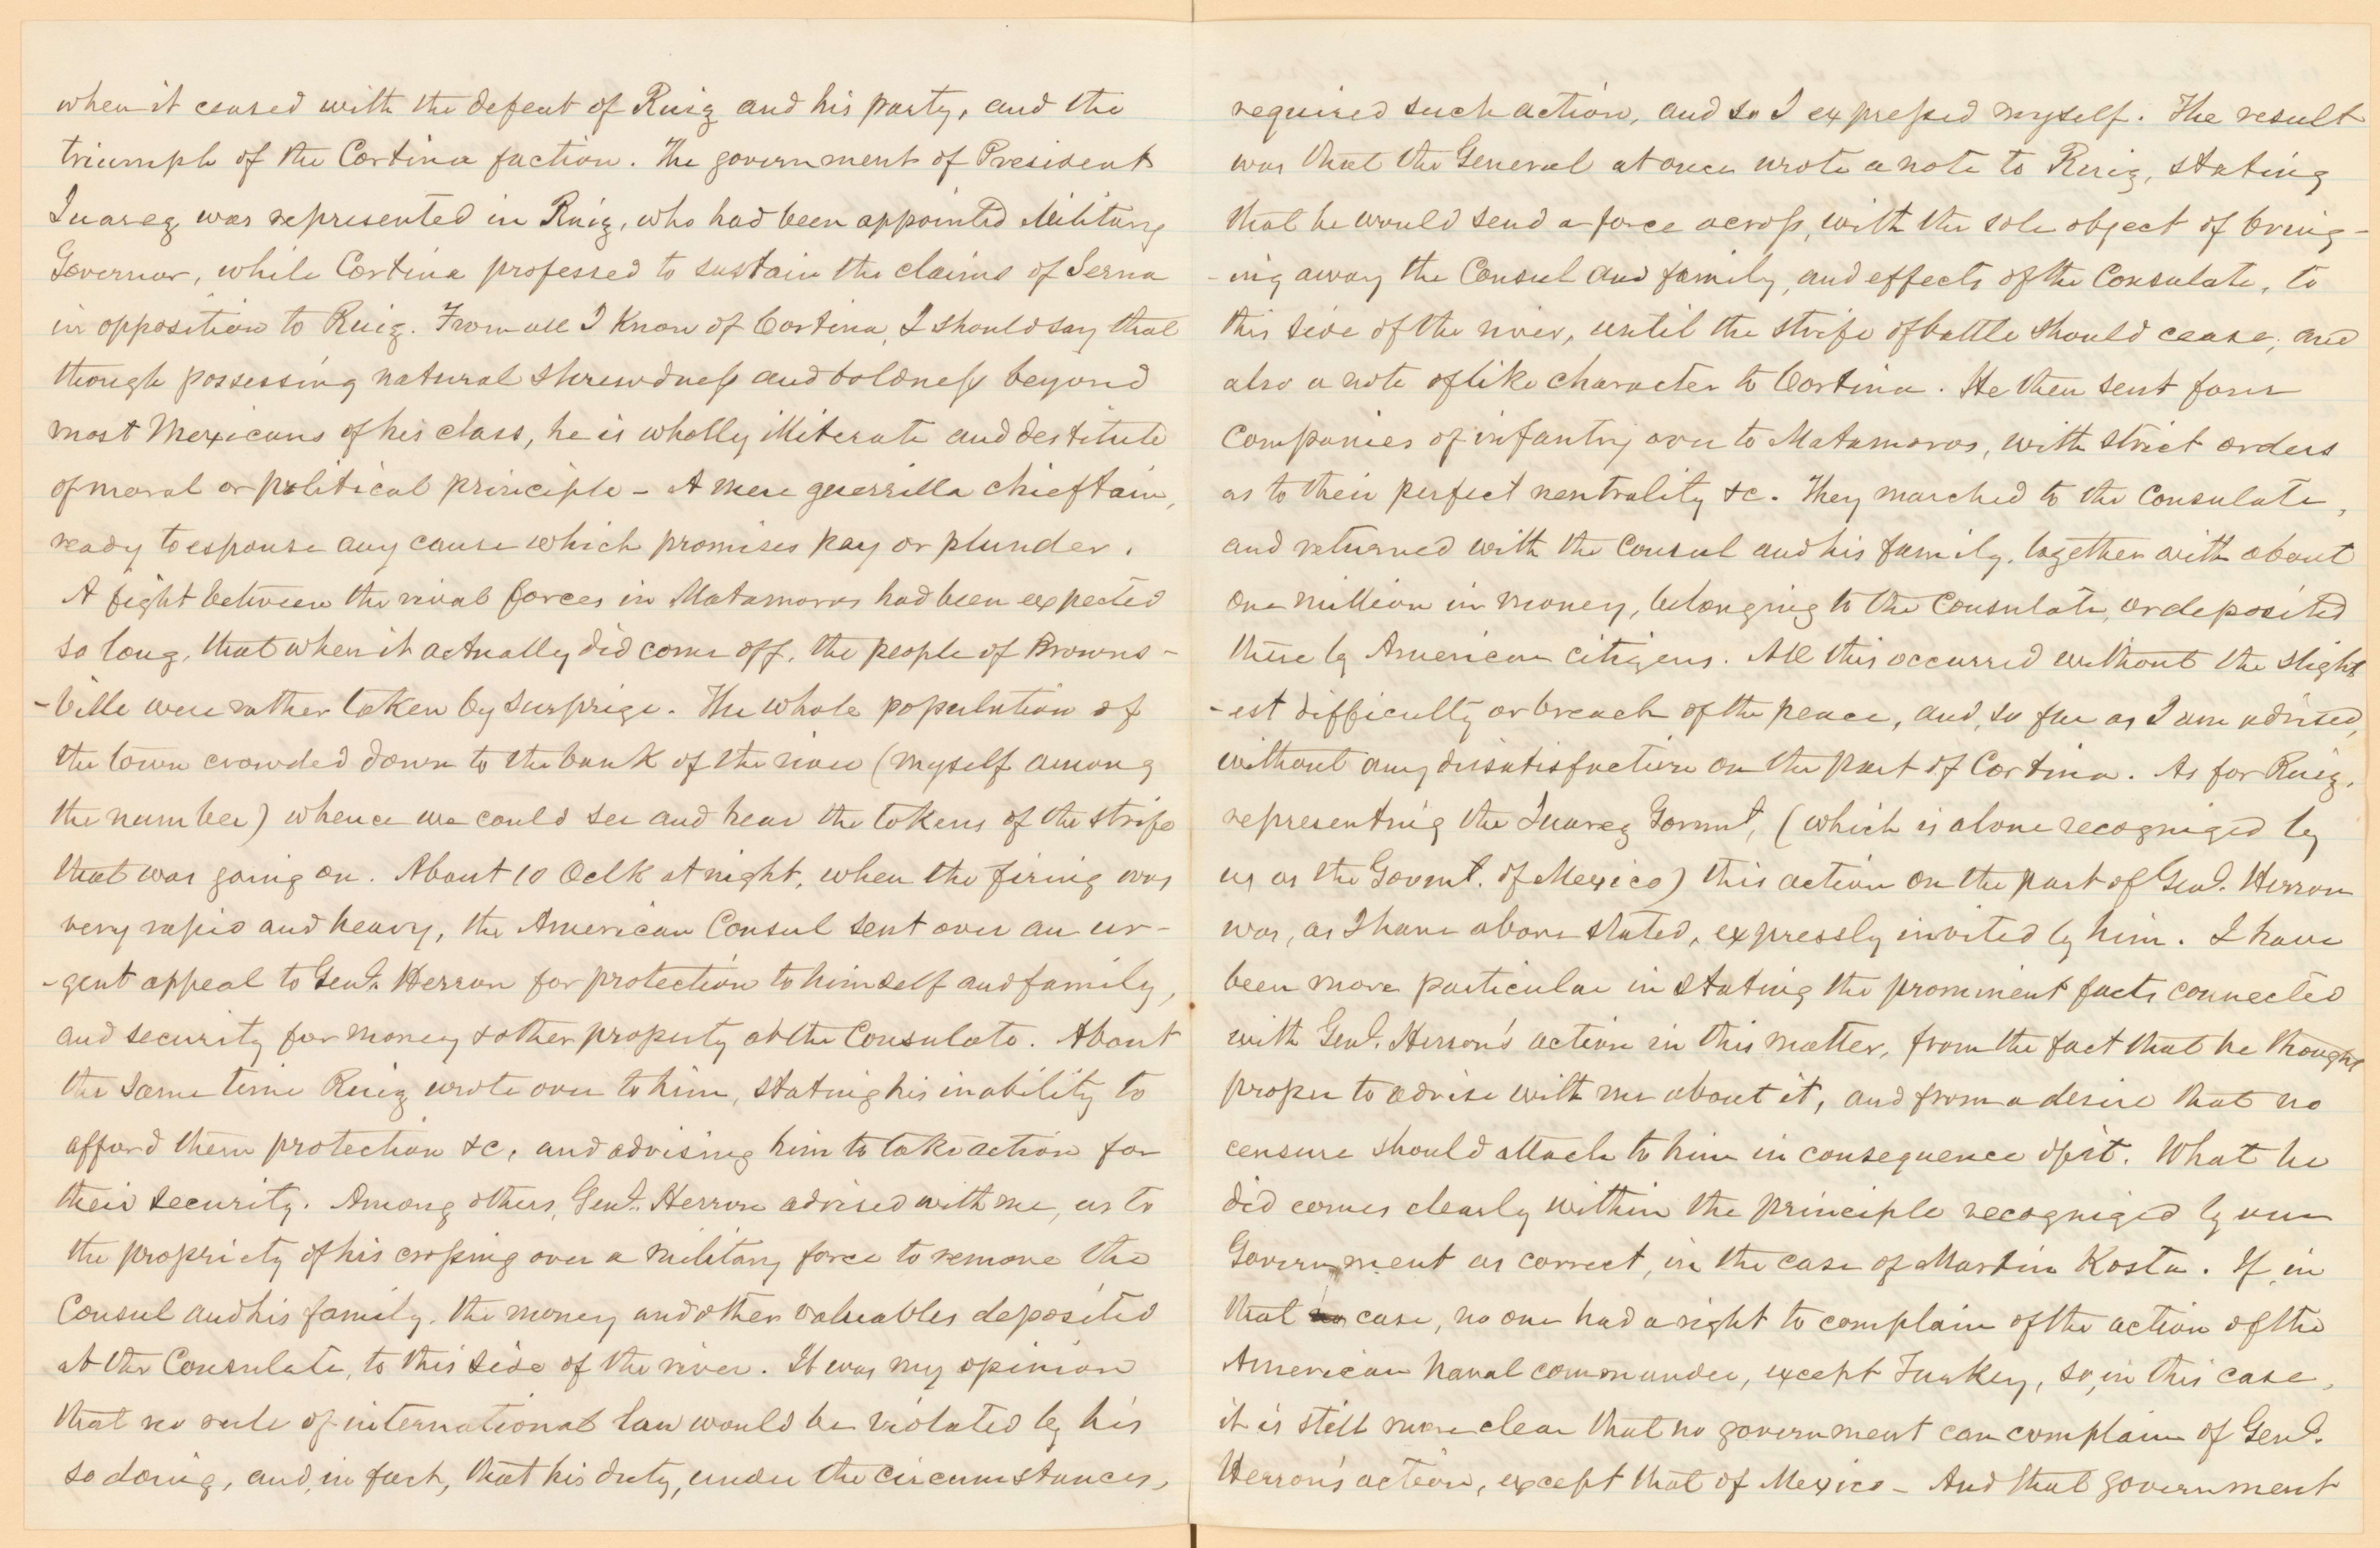 when it ceased with the defeat of Ruiz and his party, and the
triumph of the Cortina faction. The government of President
Juarez was represented in Ruiz, who had been appointed Military
Governor, while Cortina professed to sustain the claims of Serna
in opposition to Ruiz. From all I know of Cortina, I should say that
though possessing natural shrewdness and boldness beyond
most Mexicans of his class, he is wholly illiterate and destitute
of moral or political principle - A mere guerrilla chieftain,
ready to espouse any cause which promises pay or plunder.
A fight between the rival forces in Matamoras had been expected
so long, that when it actually did come off, the people of Browns-
-ville were rather taken by surprize. The whole population of
the town crowded down to the bank of the river (myself among
the number) whence we could see and hear the tokens of the strife
that was going on. About 10 Oclk at night, when the firing was
very rapid and heavy, the American Consul sent over an ur-
-gent appeal to Genl. Herron for protection to himself and family,
and security for money & other property at the Consulate. About
the same time Ruiz wrote over to him, stating his inability to
afford them protection &c, and advising him to take action for
their security. Among others, Genl. Herron advised with me, as to
the propriety of his crossing over a military force to remove the
Consul and his family, the money and other valuables deposited
at the Consulate, to this side of the river. It was my opinion
that no rule of international law would be violated by his
so doing, and, in fact, that his duty, under the circumstances,
required such action, and so I expressed myself. The result
was that the General at once wrote a note to Ruiz, stating
that he would send a force across, with the sole object of bring-
-ing away the Consul and family, and effects of the Consulate, to
this side of the river, until the strife of battle should cease; and
also a note of like character to Cortina. He then sent four
Companies of infantry over to Matamoras, with strict orders
as to their perfect neutrality &c. They marched to the Consulate,
and returned with the Consul and his family, together with about
one million in money, belonging to the Consulate, or deposited
there by American citizens. All this occurred without the slight
-est difficulty or breach of the peace, and, so far as I am advised,
without any dissatisfaction on the part of Cortina. As for Ruiz,
representing the Juarez Govmnt, (which is alone recognized by
us as the Govmnt. of Mexico) this action on the part of Genl. Herron
was, as I have above stated, expressly invited by him. I have
been more particular in stating the prominent facts connected
with Genl. Herron's action in this matter, from the fact that he thought
proper to advise with me about it, and from a desire that no
censure should attach to him in consequence of it. What he
did comes clearly within the principle recognized by our
Government as correct, in the case of Martin Kosta. If in
that case, no one had a right to complain of the action of the
American Naval commander, except Turkey, so, in this case,
it is still more clear that no government can complain of Genl.
Herron's action, except that of Mexico - And that government